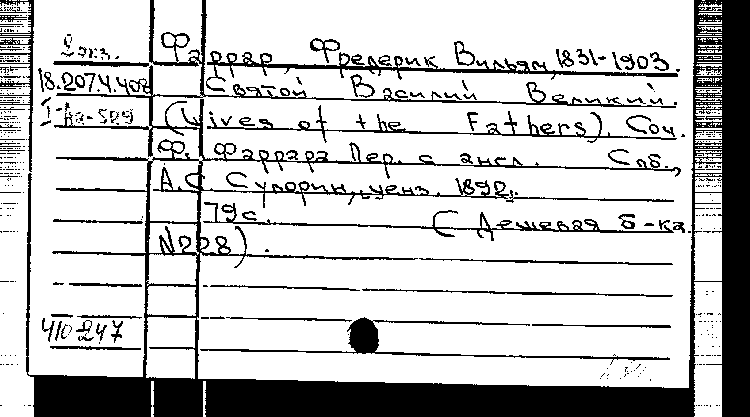 2 экз. Фаррар, Фредерик Вильям, 1831-1903.
18.207.4.408 Святой Василий Великий.
(Lives of the Fathers). Соч.
Ф. Фаррара Пер. с англ. Спб.,
А.С Суворин, ценз. 1892.
79 с. (Дешевая б-ка.
N228).
410247